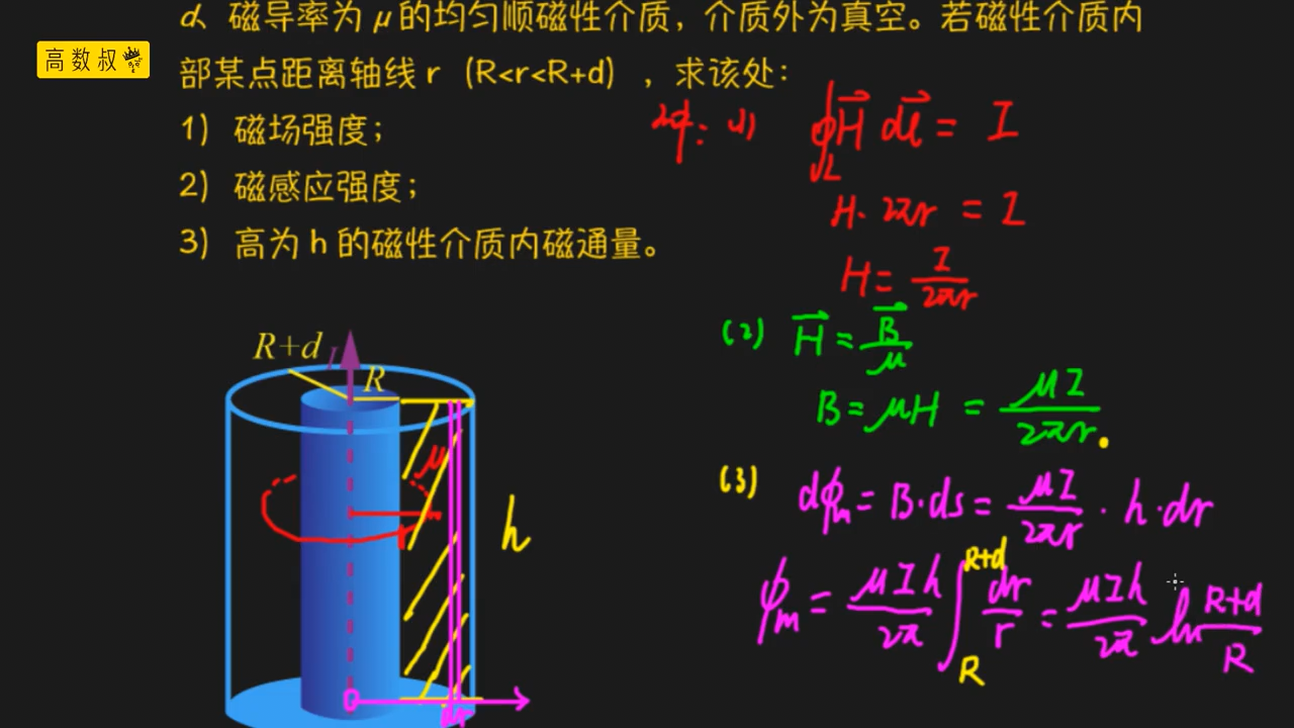 高数叔
d、磁导率为 μ 的均匀顺磁性介质，介质外为真空。若磁性介质内
部某点距离轴线 r（R<r<R+d），求该处：
1）磁场强度；
2）磁感应强度；
3）高为 h 的磁性介质内磁通量。
(1) ∮_L H⃗ dl⃗ = I
H·2πr = I
H = I/2πr
(2) H⃗ = B⃗/μ
B = μH = μI/2πr.
(3) dφm = B·ds = μI/2πr · h·dr
φm = μIh/2π ∫_R^{R+d} dr/r = μIh/2π ln (R+d)/R
R+d I
R
μ
r
h
O
dr